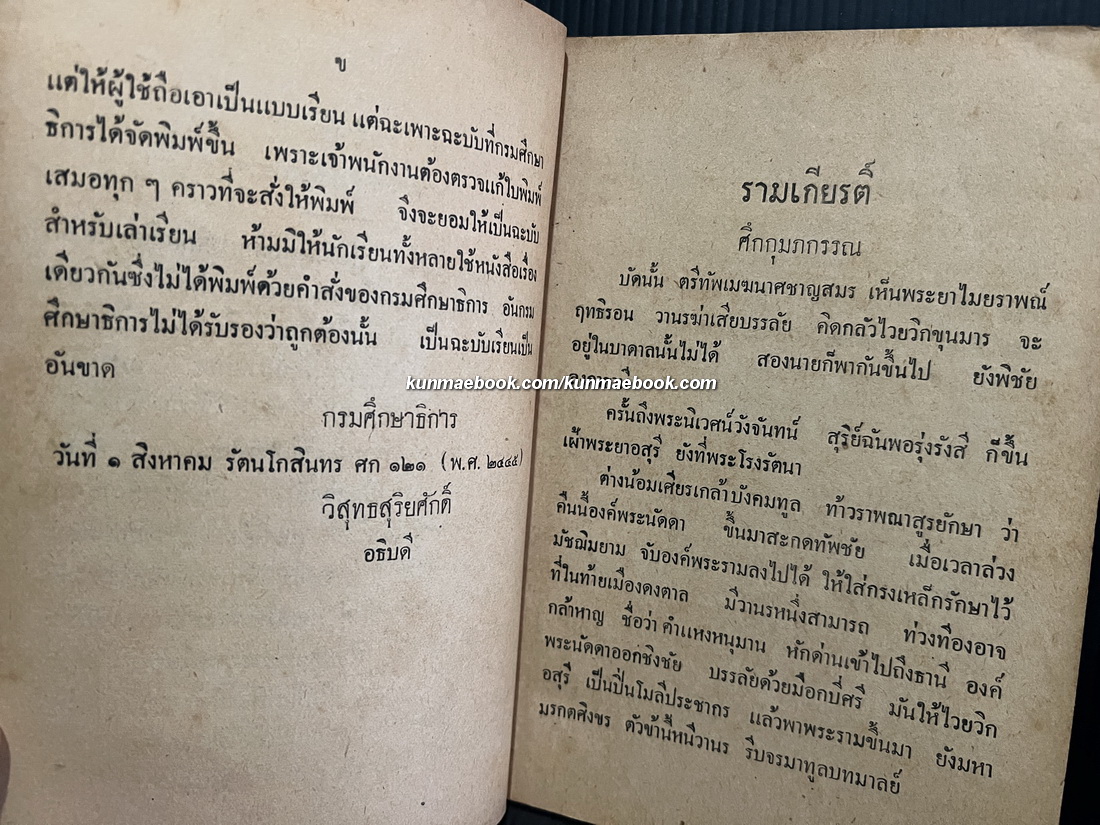 ข
แต่ให้ผู้ใช้ถือเอาเป็นแบบเรียน แต่ฉะเพาะฉะบับที่กรมศึกษา
ธิการได้จัดพิมพ์ขึ้น เพราะเจ้าพนักงานต้องตรวจแก้ใบพิมพ์
เสมอทุก ๆ คราวที่จะสั่งให้พิมพ์ จึงจะยอมให้เป็นฉะบับ
สำหรับเล่าเรียน ห้ามมิให้นักเรียนทั้งหลายใช้หนังสือเรื่อง
เดียวกันซึ่งไม่ได้พิมพ์ด้วยคำสั่งของกรมศึกษาธิการ อันกรม
ศึกษาธิการไม่ได้รับรองว่าถูกต้องนั้น เป็นฉะบับเรียนเป็น
อันขาด
กรมศึกษาธิการ
วันที่ ๑ สิงหาคม รัตนโกสินทร ศก ๑๒๑ (พ.ศ. ๒๔๔๕)
วิสุทธสุริยศักดิ์
อธิบดี
รามเกียรติ์
ศึกกุมภกรรณ
บัดนั้น ตรีทัพเมฆนาศชาญสมร เห็นพระยาไมยราพณ์
ฤทธิรอน วานรฆ่าเสียบรรลัย คิดกลัวไวยวิกขุนมาร จะ
อยู่ในบาดาลนั้นไม่ได้ สองนายก็พากันขึ้นไป ยังพิชัย
kunmaebook.com/kunmaebook.com
ครั้นถึงพระนิเวศน์วังจันทน์ สุริย์ฉันพอรุ่งรังสี ก็ขึ้น
เฝ้าพระยาอสุรี ยังที่พระโรงรัตนา
ต่างน้อมเศียรเกล้าบังคมทูล ท้าวราพณาสูรยักษา ว่า
คืนนี้องค์พระนัดดา ขึ้นมาสะกดทัพชัย เมื่อเวลาล่วง
มัชฌิมยาม จับองค์พระรามลงไปได้ ให้ใส่กรงเหล็กรักษาไว้
ที่ในท้ายเมืองดงตาล มีวานรหนึ่งสามารถ ท่วงทีองอาจ
กล้าหาญ ชื่อว่า คำแหงหนุมาน หักด่านเข้าไปถึงธานี องค์
พระนัดดาออกชิงชัย บรรลัยด้วยมือกบี่ศรี มันให้ไวยวิก
อสุรี เป็นปิ่นโมลีประชากร แล้วพาพระรามขึ้นมา ยังมหา
มรกตสิงขร ตัวข้านี้หนีวานร รีบจรมาทูลบทมาลย์